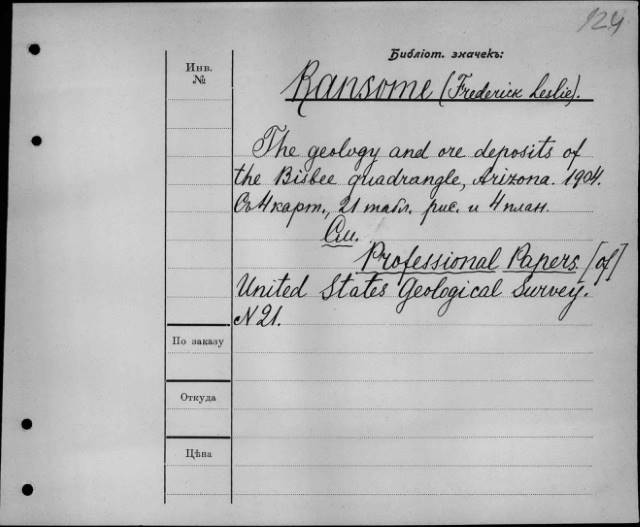 124
Библіот. значекъ:
Инв.
№
Ransome (Frederick Leslie).
The geology and ore deposits of
the Bisbee quadrangle, Arizona. 1904.
Съ 4 карт., 21 табл. рис. и 4 план.
См.
Professional Papers [of]
United States Geological Survey.
N 21.
По заказу
Откуда
Цѣна